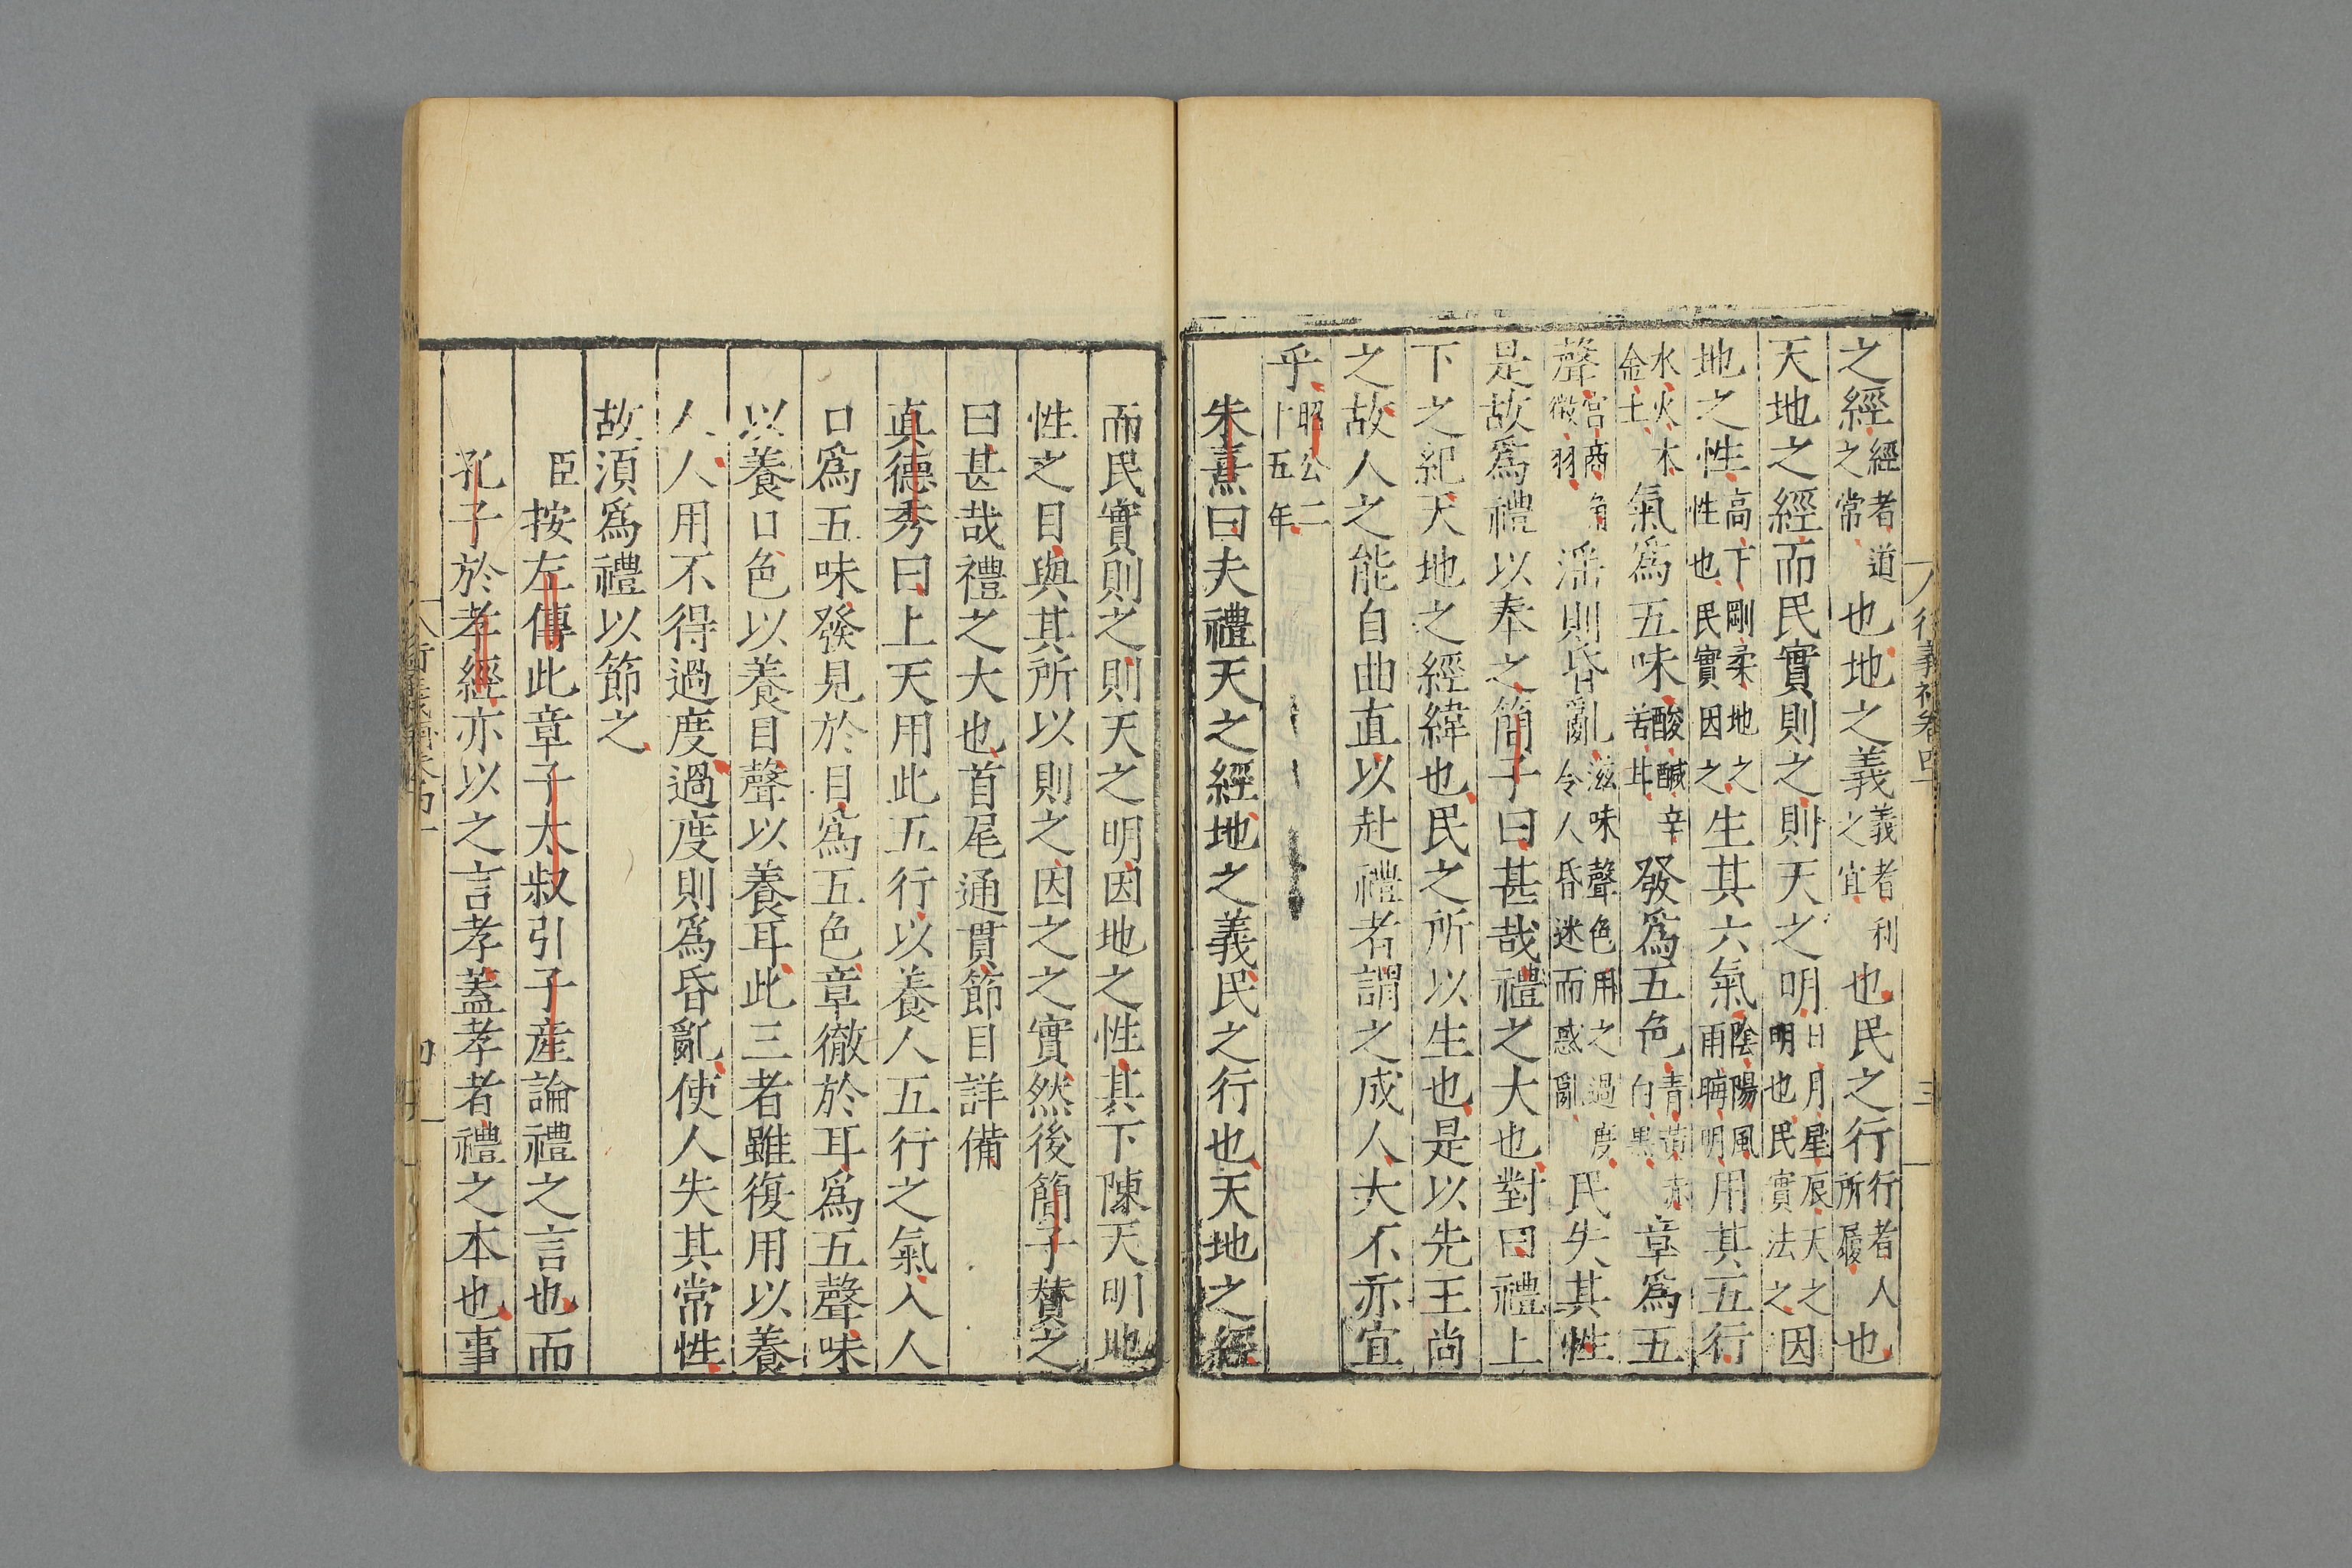 之經經者道之常也地之義義者利之宜也民之行行者人所履也
天地之經而民實則之則天之明日月星辰天之明也民實法之因
地之性高下剛柔地之性也民實因之生其六氣陰陽風雨晦明用其五行
水火木金土氣爲五味酸鹹辛苦甘發爲五色青黃赤白黑章爲五
聲宮商角徵羽淫則昏亂滋味聲色用之過度令人昏迷而惑亂民失其性
是故爲禮以奉之簡子曰甚哉禮之大也對曰禮上
下之紀天地之經緯也民之所以生也是以先王尚
之故人之能自曲直以赴禮者謂之成人大不亦宜
乎昭公二十五年
朱熹曰夫禮天之經地之義民之行也天地之經
而民實則之則天之明因地之性其下陳天明地
性之目與其所以則之因之之實然後簡子贊之
曰甚哉禮之大也首尾通貫節目詳備
真德秀曰上天用此五行以養人五行之氣入人
口爲五味發見於目爲五色章徹於耳爲五聲味
以養口色以養目聲以養耳此三者雖復用以養
人人用不得過度過度則爲昏亂使人失其常性
故須爲禮以節之
臣按左傳此章子太叔引子產論禮之言也而
孔子於孝經亦以之言孝蓋孝者禮之本也事